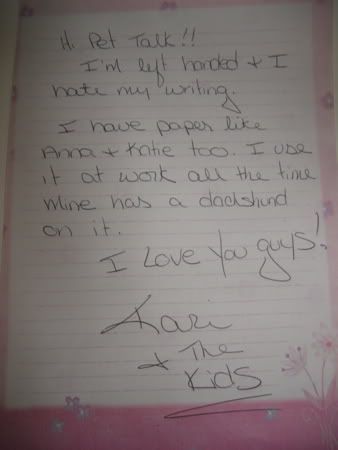 Hi Pet Talk!!
I'm left handed + I
hate my writing.
I have paper like
Anna + Katie too. I use
it at work all the time
mine has a dachshund
on it.
I Love You guys!
Kari
+ The
Kids